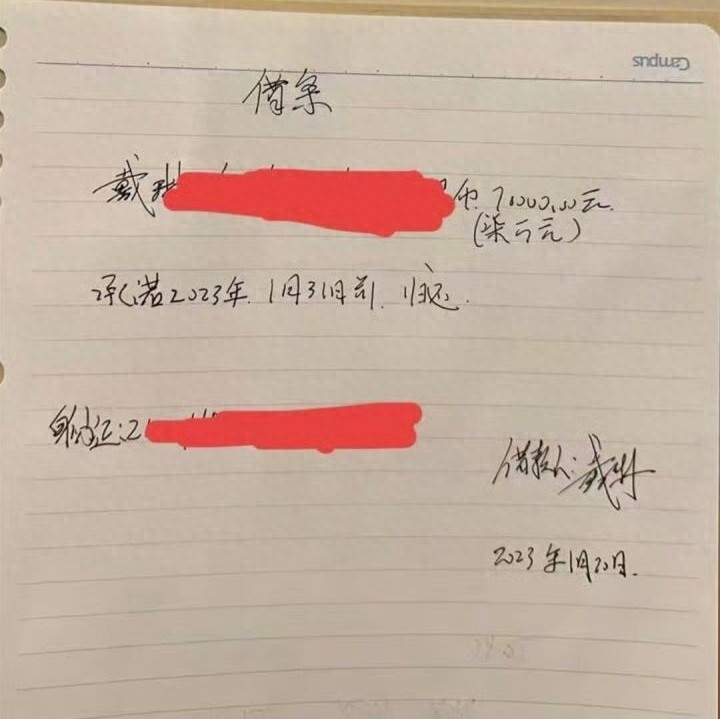 Campus
借条
戴 币70000.00元.
(柒万元)
承诺2023年.1月31日前.归还.
身份证:2
借款人:戴琳
2023年1月20日.